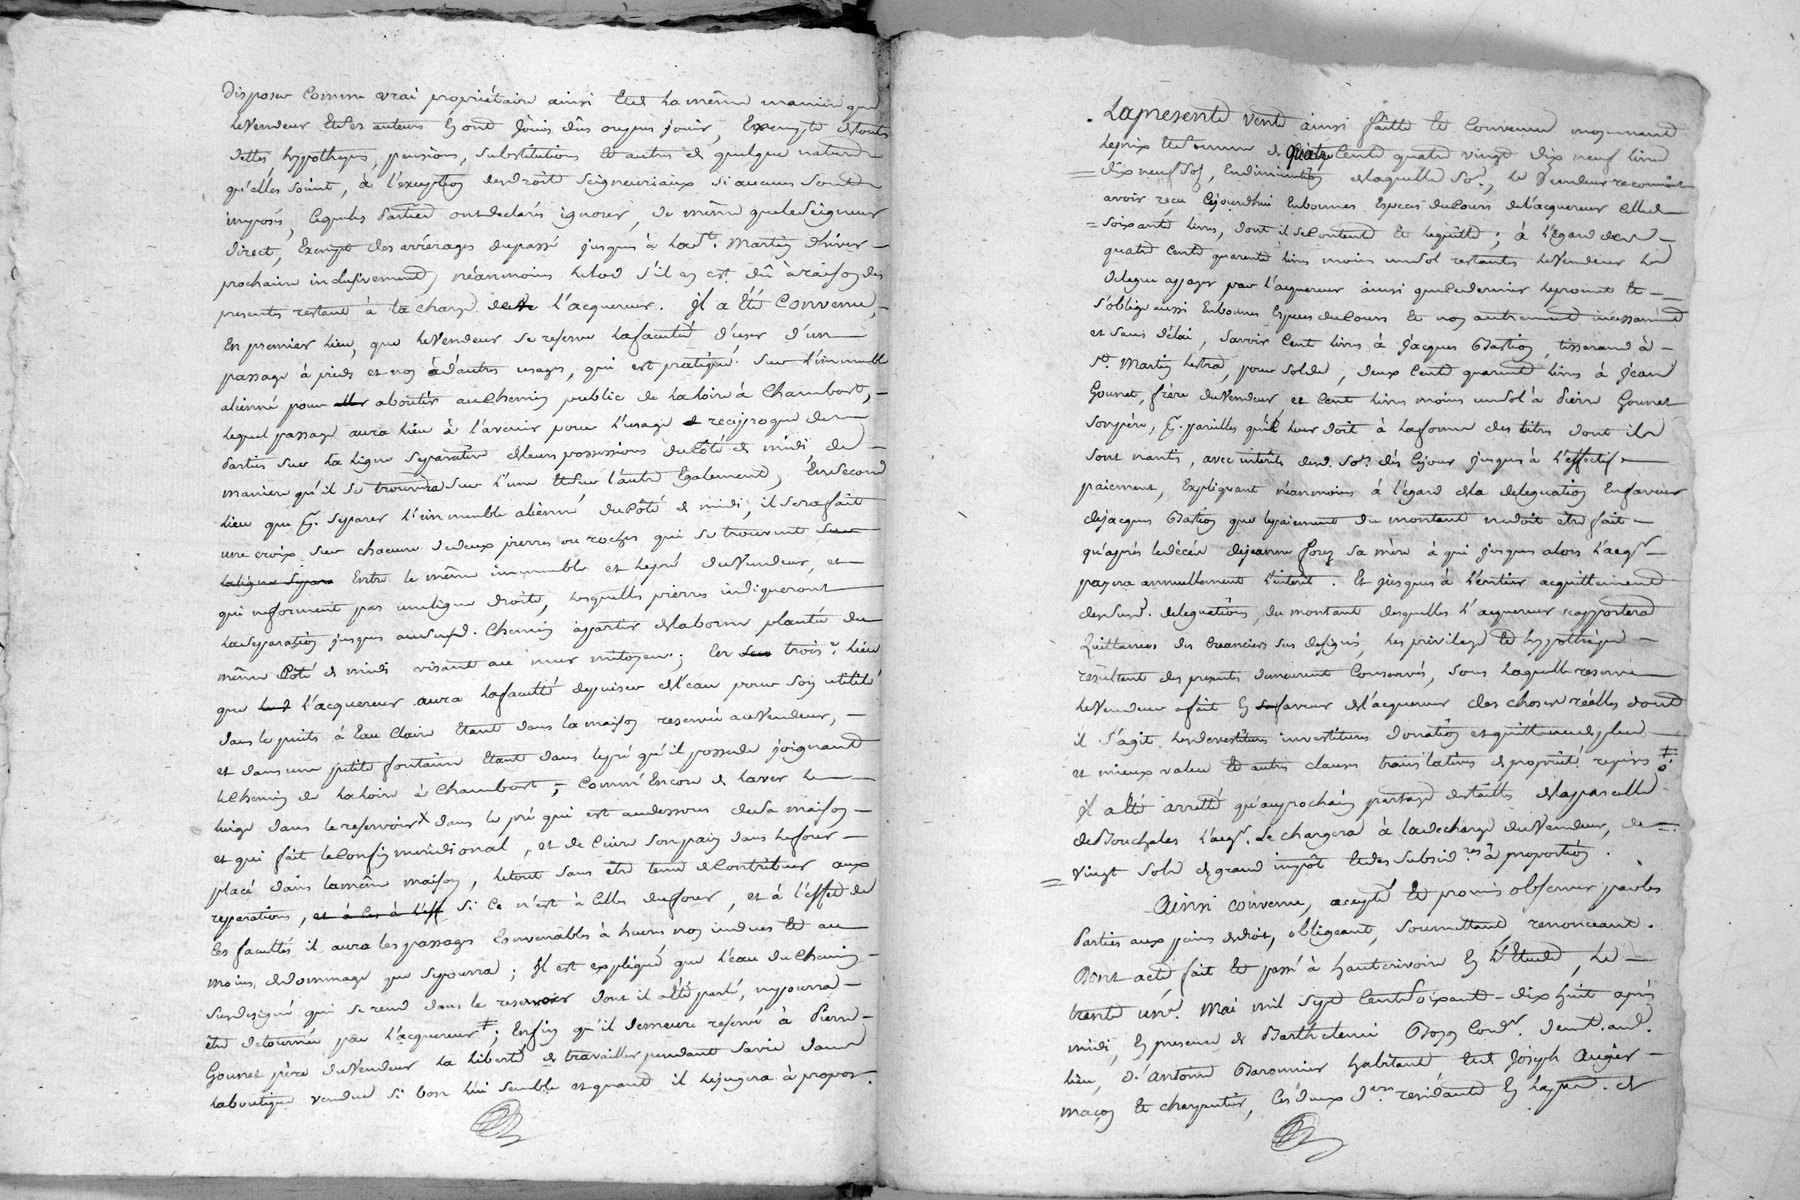 disposer comme vrai propriétaire ainsi et de la même maniere que
le Vendeur et ses auteurs en ont joüis dûs ou pus jouir, Exempte de toute
dettes, hypotheques, pensions, substitutions et autres de quelque nature
qu'elles soient, à l'exception des droits seigneuriaux si aucuns sont
imposés, lesquels Parties ont declarés ignorer, de même que le Seigneur
direct, Exempt des arrérages du passé jusques à la St. Martin d'hiver
prochaine inclusivement, néanmoins le lod s'il en est dû à raison des
presentes restant à la charge de l'acquereur. Il a été Convenu,
En premier lieu, que le Vendeur se reserve la faculté d'user d'un
passage à pieds et non à d'autres usages, qui est pratiqué sur l'immeuble
aliénné pour aboutir au Chemin public de la loire à Chambost,
lequel passage aura lieu à l'avenir pour l'usage reciproque des
Parties sur la ligne separative de leurs possessions du Côté de midi de
maniere qu'il se trouvera sur l'une et sur l'autre Egalement, En second
lieu que pr. separer l'immeuble aliénné du Côté de midi, il sera fait
une croix sur chacune de deux pierres ou roches qui se trouvent sur
la ligne separa Entre le même immeuble et le pré du Vendeur, et
qui ne forment pas une ligne droite, lesquelles pierres indiqueront
la separation jusques au susd. Chemin appartir de la borne plantée du
même Côté de midi visant au mur mitoyen; En trois.e lieu
que l'acquereur aura la faculté de puiser de l'eau pour son utilité
dans le puits à Eau Claire étant dans la maison reservée au Vendeur,
et dans une petite fontaine étant dans le pré qu'il possede joignant
le Chemin de la loire à Chambost; Comm'Encore de laver le
linge dans le reservoir X dans le pré qui est au dessous de sa maison
et qui fait le Confin meridional, et de Cuire son pain dans le four
placé dans la même maison, le tout sans être tenu de Contribuer aux
reparations, et à ces à l'eff si Ce n'est à Celles du four, et à l'effet de
Ces facultés il aura les passages Convenables à heures non indues et au
moins de dommage que se pourra; Il est expliqué que l'eau du Chemin
sus designé qui se rend dans le reservoir dont il a été parlé, ne pourra
être detournée par l'acquereur ‡; Enfin qu'il demeure reservé à Pierre
Gounet père du Vendeur la liberté de travailler pendant sa vie dans
la boutique vendue si bon lui semble et quand il le jugera à propos.
La presente vente ainsi faitte et Convenue moyennant
le prix et somme de quatre Cents quatre vingt dix neuf livres
dix neuf sols, En diminution de laquelle So.e, le Vendeur reconnoit
avoir reçu Cejourdhui En bonnes Especes du Cours de l'acquereur Celle de
soixante livres, dont il se Contente et le quitte; à l'égard des
quatre Cents quarente livres moins un sol restants le Vendeur le
delegue à payer par l'acquereur ainsi que le dernier le promet et
s'oblige aussi En bonnes Especes du Cours et non autrement incessament
et sans délai, savoir Cent livres à Jacques Bastion, tisserand à
St. Martin Lestra, pour solde, deux Cents quarente livres à Jean
Gounet, frère du Vendeur et Cent livres moins un sol à Pierre Gounet
son père, pr. pareilles qu'il leur doit à la forme des titres dont ils
sont nantis, avec interets desd. So.es dès Cejour jusques à l'effectif
paiement, Expliquant néanmoins à l'égard de la delegation En faveur
de Jacques Bastion que le paiement du montant ne doit être fait
qu'après le décès de Jeanne Forez sa mère à qui jusques alors l'acq.r
payera annuellement l'interet. Et jusques à l'entier acquittement
des susd. delegations, du montant desquelles l'acquereur rapportera
Quittances des Creanciers sus designés, les privilege et hypothèque
résultant des presentes demeurent Conservés, sous laquelle reserve
le Vendeur a fait En faveur de l'acquereur des choses réelles dont
il s'agit les devestitures investitures donation et quittance de plus
et mieux value et autres clauses translatives de proprieté requises ‡
Il a été arretté qu'au prochain partage des tailles de la parcelle
de Bouchalas l'acq.r se chargera à la decharge du Vendeur, de
vingt sols de grand impôt et des subsid.res à proportion.
Ainsi convenu, accepté et promis observer par les
Parties aux peines de droit, obligeant, soumettant renonceant.
Dont acte fait et passé à hauterivoire En l'Etude, le
trente un.e Mai mil sept Cent soixante-dix huit après
midi, En presence de Barthelemi Cond.r demt. aud.
lieu, d'Antoine Baronnier habitant et de Joseph Augier
maçon et charpentier, Ces deux d.ers residants En la par. de